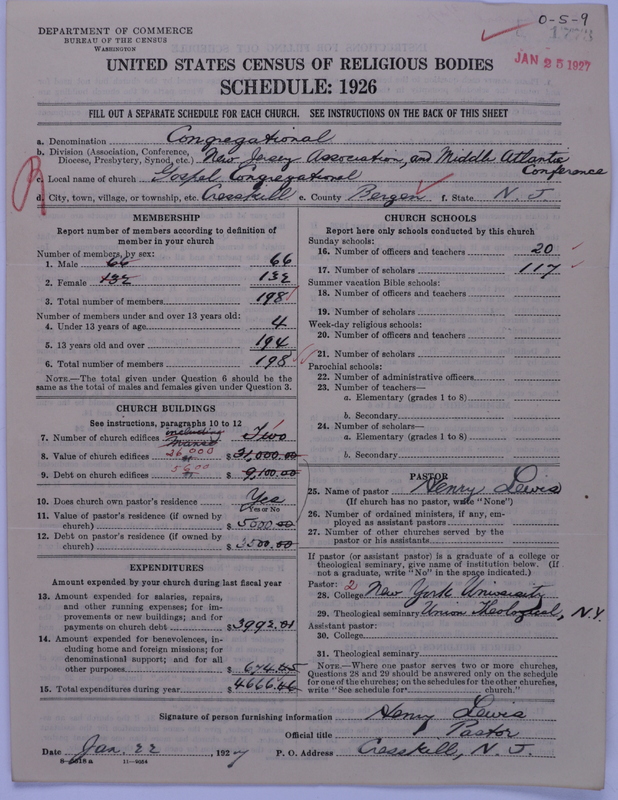 DEPARTMENT OF COMMERCE
BUREAU OF THE CENSUS
WASHINGTON
0-5-9
1773
JAN 25 1927
UNITED STATES CENSUS OF RELIGIOUS BODIES
SCHEDULE: 1926
FILL OUT A SEPARATE SCHEDULE FOR EACH CHURCH. SEE INSTRUCTIONS ON THE BACK OF THIS SHEET
a. Denomination Congregational
b. Division (Association, Conference, Diocese, Presbytery, Synod, etc.) New Jersey Association, and Middle Atlantic Conference
c. Local name of church Gospel Congregational
d. City, town, village, or township, etc. Cresskill e. County Bergen f. State N. J.
MEMBERSHIP
Report number of members according to definition of
member in your church
Number of members, by sex:
1. Male 66 66
2. Female 132 132
3. Total number of members 198
Number of members under and over 13 years old:
4. Under 13 years of age 4
5. 13 years old and over 194
6. Total number of members 198
NOTE.—The total given under Question 6 should be the
same as the total of males and females given under Question 3.
CHURCH BUILDINGS
See instructions, paragraphs 10 to 12
including
7. Number of church edifices Manse Two
26,000
8. Value of church edifices $ 31,000.00
5600
9. Debt on church edifices $ 9,100.00
10. Does church own pastor's residence Yes
Yes or No
11. Value of pastor's residence (if owned by
church) $ 5000.00
12. Debt on pastor's residence (if owned by
church) $ 3500.00
EXPENDITURES
Amount expended by your church during last fiscal year
13. Amount expended for salaries, repairs,
and other running expenses; for im-
provements or new buildings; and for
payments on church debt $ 3992.01
14. Amount expended for benevolences, in-
cluding home and foreign missions; for
denominational support; and for all
other purposes $ 674.45
15. Total expenditures during year $ 4666.46
CHURCH SCHOOLS
Report here only schools conducted by this church
Sunday schools:
16. Number of officers and teachers 20
17. Number of scholars 117
Summer vacation Bible schools:
18. Number of officers and teachers
19. Number of scholars
Week-day religious schools:
20. Number of officers and teachers
21. Number of scholars
Parochial schools:
22. Number of administrative officers
23. Number of teachers—
a. Elementary (grades 1 to 8)
b. Secondary
24. Number of scholars—
a. Elementary (grades 1 to 8)
b. Secondary
PASTOR
25. Name of pastor Henry Lewis
(If church has no pastor, write "None")
26. Number of ordained ministers, if any, em-
ployed as assistant pastors
27. Number of other churches served by the
pastor or his assistants
If pastor (or assistant pastor) is a graduate of a college or
theological seminary, give name of institution below. (If
not a graduate, write "No" in the space indicated.)
Pastor: 2
28. College New York University
29. Theological seminary Union Theological, N.Y.
Assistant pastor:
30. College
31. Theological seminary
NOTE.—Where one pastor serves two or more churches,
Questions 28 and 29 should be answered only on the schedule
for one of the churches; on the schedules for the other churches,
write "See schedule for church."
Signature of person furnishing information Henry Lewis
Official title Pastor
Date Jan. 22 1927 P. O. Address Cresskill, N. J.
8-5518 a 11-9054